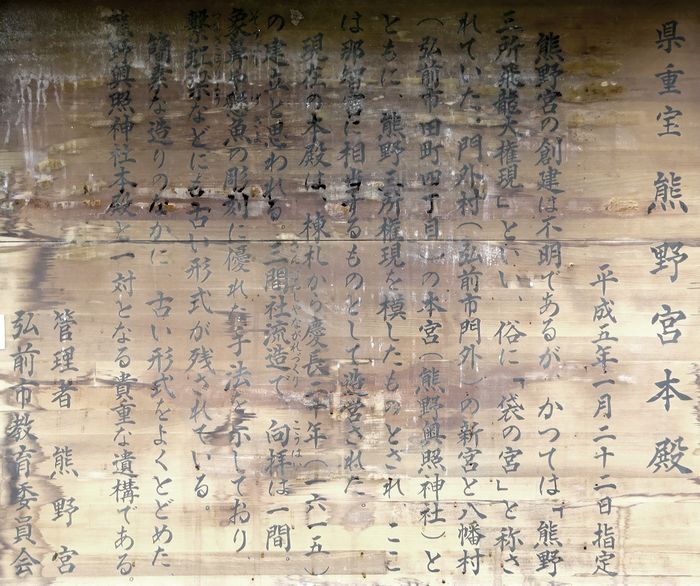 県重宝 熊野宮本殿
平成五年一月二十二日指定
熊野宮の創建は不明であるが、かつては「熊野
三所飛龍大権現」といい、俗に「袋の宮」と称さ
れていた。門外村(弘前市門外)の新宮と八幡村
(弘前市田町四丁目)の本宮(熊野奥照神社)と
ともに、熊野三所権現を模したものとされ、ここ
は那智宮に相当するものとして造営された。
現在の本殿は、棟札から慶長二十年(一六一五)
の建立と思われる。三間社流造で、向拝は一間。
象鼻や蟇股の彫刻に優れた手法を示しており、
繋虹梁などにも古い形式が残されている。
簡素な造りのなかに、古い形式をよくとどめた、
熊野奥照神社本殿と一対となる貴重な遺構である。
管理者 熊野宮
弘前市教育委員会